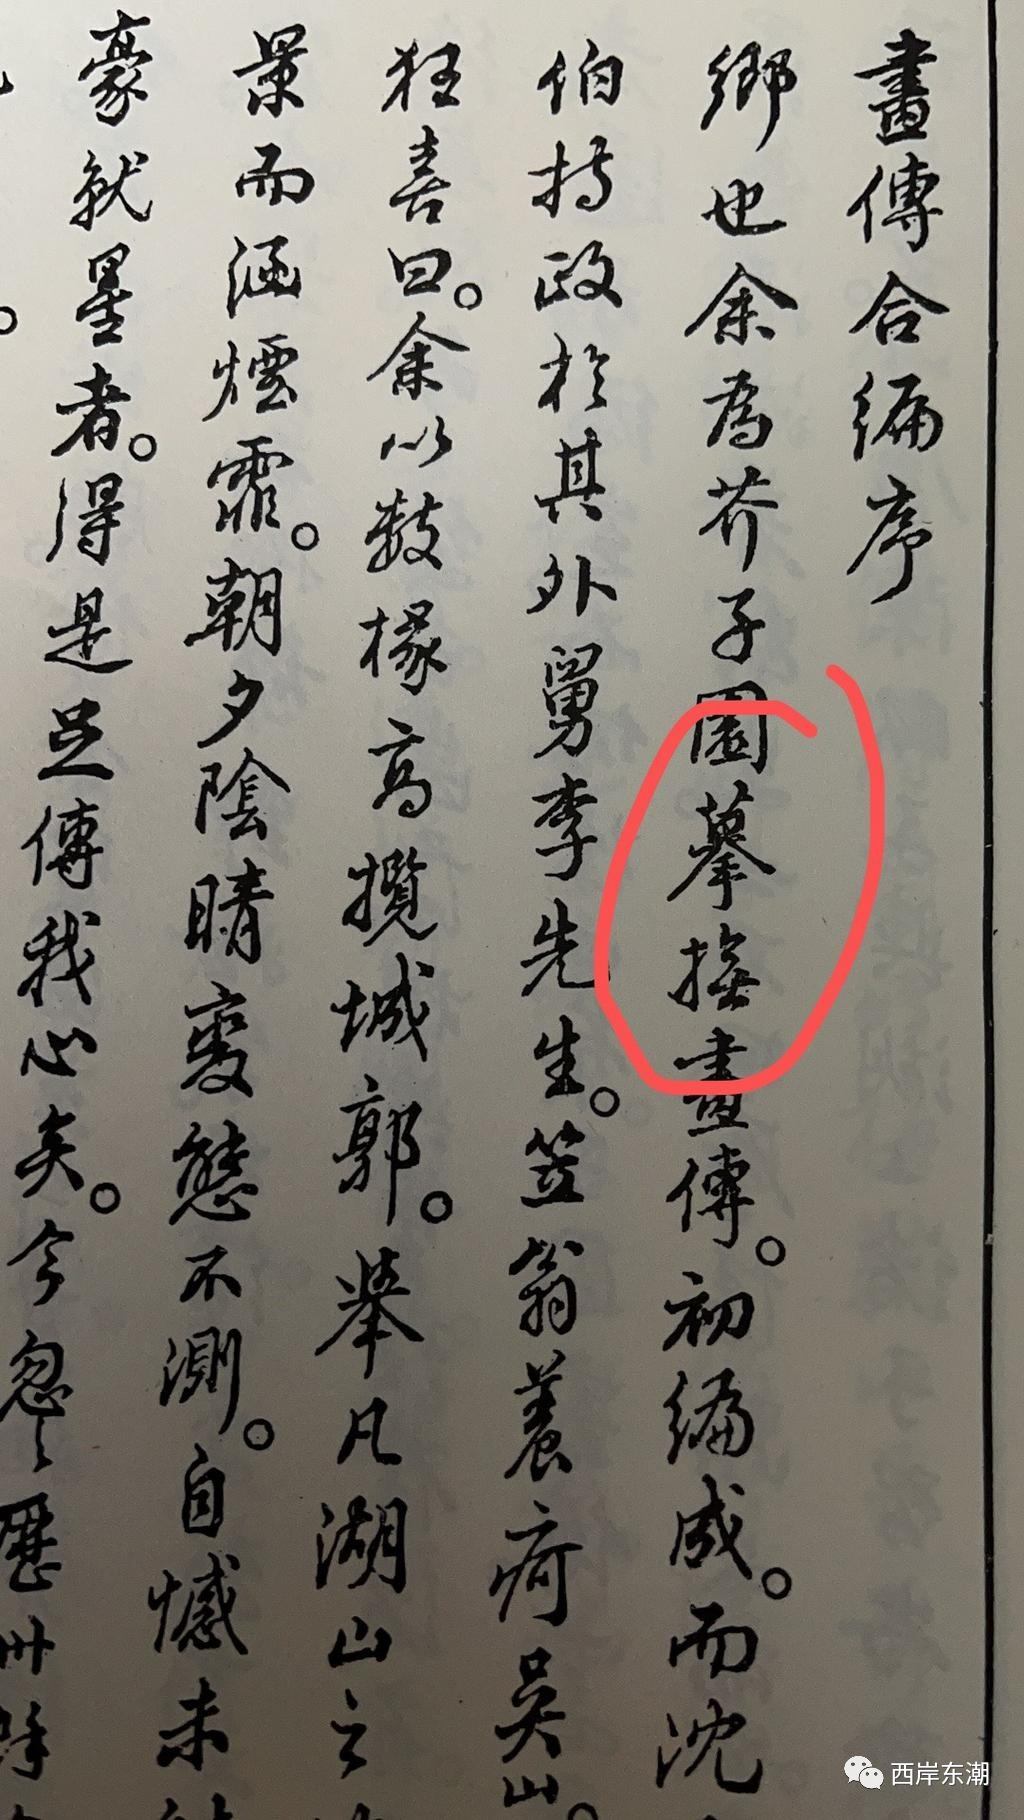 畫傳合編序
鄉也余為芥子園摹撫畫傳。初編成。而沈
伯持政於其外舅李先生。笠翁養疴吳山。
狂喜曰。余以數椽高攬城郭。舉凡湖山之
景而涵煙霏。朝夕陰晴變態不測。自憾未
豪就墨者。得是足傳我心矣。今忽〻歷
西岸东潮